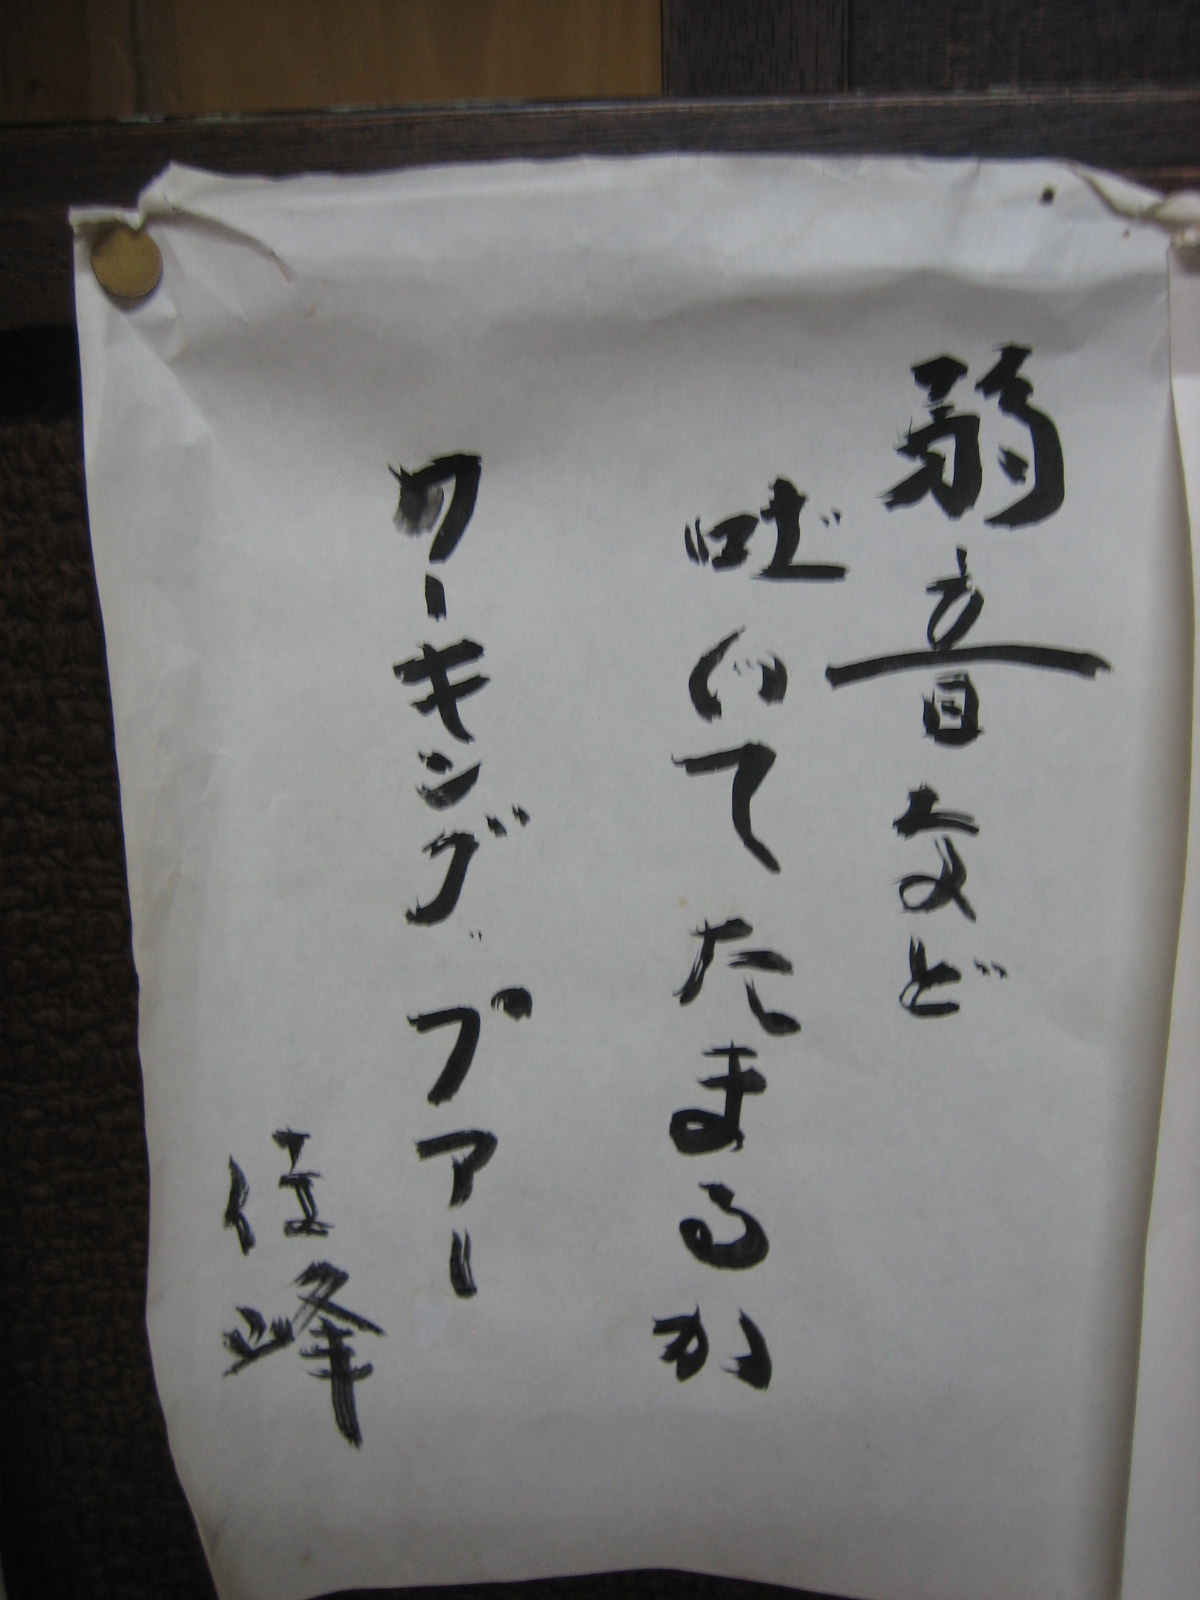 弱音など
吐いてたまるか
ワーキングプアー
佳峰